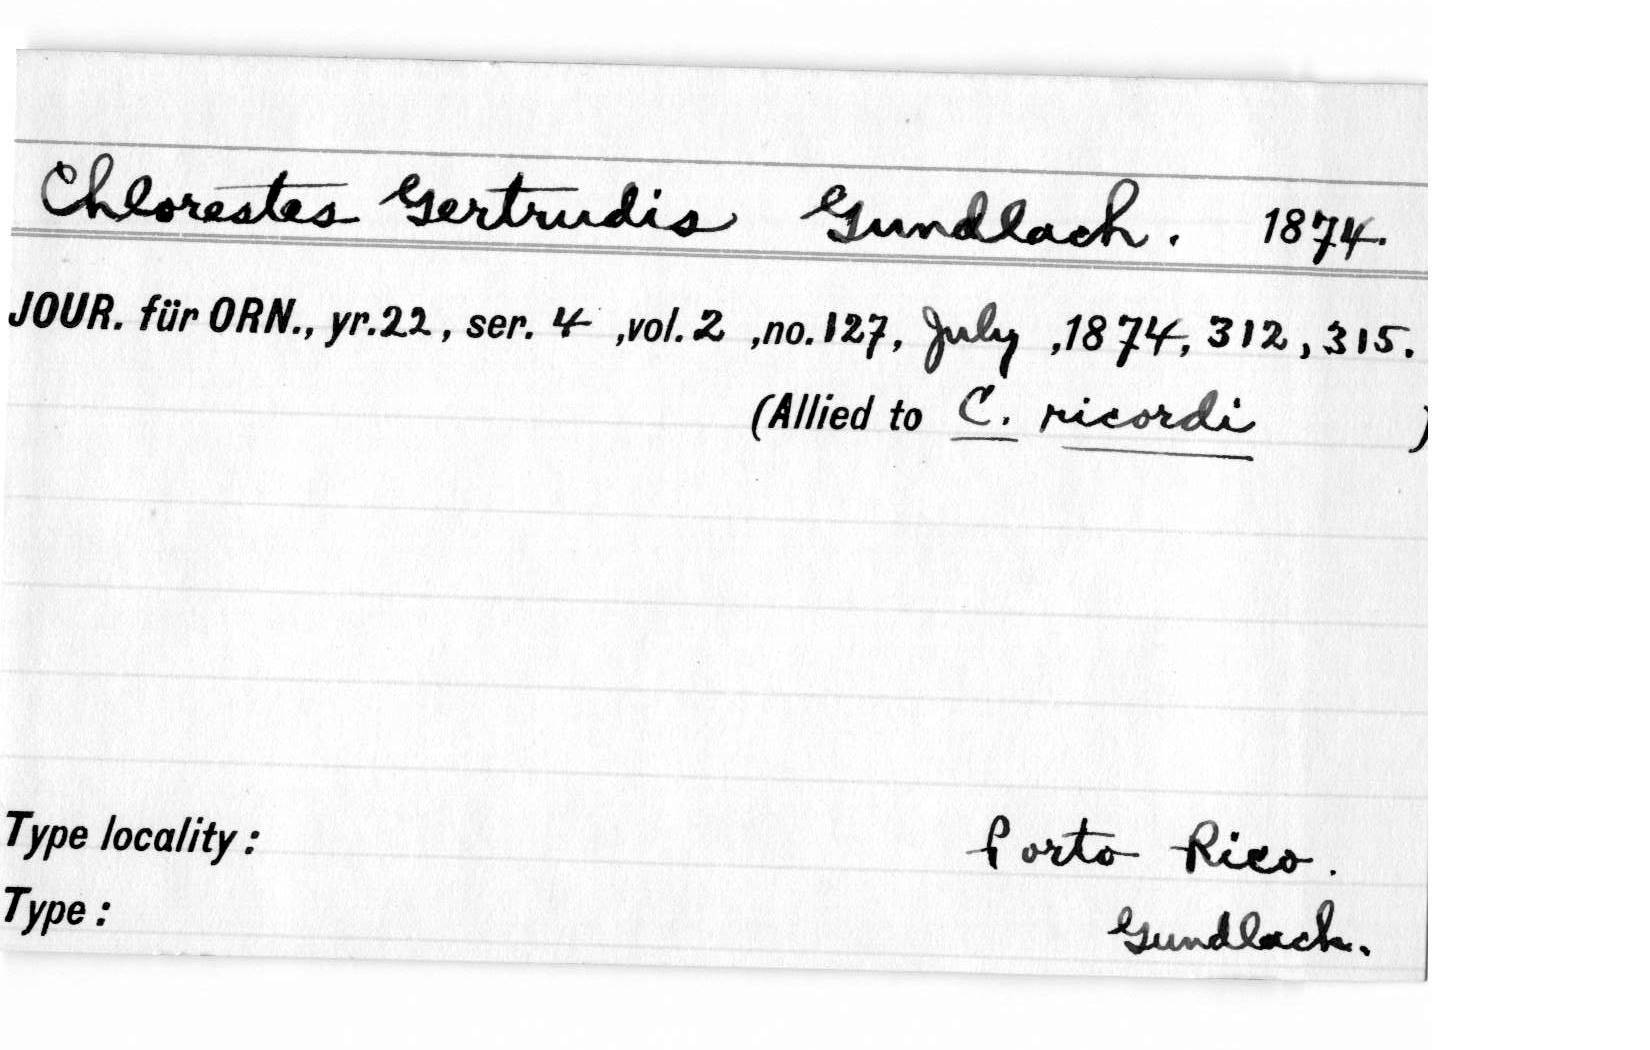 Chlorestes Gertrudis Gundlach. 1874.
JOUR. für ORN., yr.22, ser. 4 ,vol. 2 ,no.127, July ,1874, 312, 315.
(Allied to C. ricordi )
Type locality: Porto Rico.
Type: Gundlach.